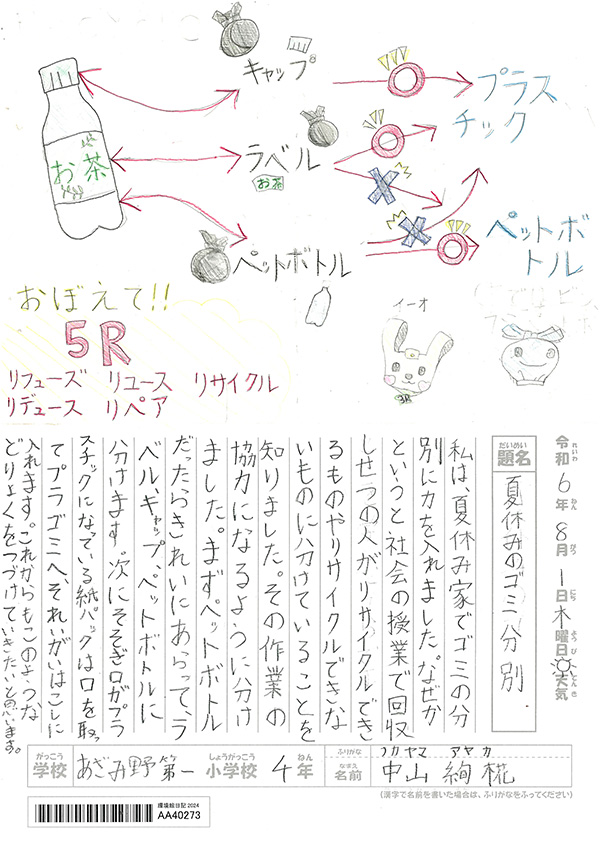 キャップ
プラス
チック
お茶
ラベル
お茶
ペットボトル
ペットボ
トル
おぼえて!!
5R
リフューズ リユース リサイクル
リデュース リペア
イーオ
3R
令和6年8月1日木曜日 天気
れいわ ねん がつ にち ようび てんき
だいめい
題名
夏休みのゴミ分別.
私は、夏休み家でゴミの分
別に力を入れました。なぜか
というと社会の授業で回収
しせつの人がリサイクルでき
るものやリサイクルできな
いものに分けていることを
知りました。その作業の
協力になるように分け
ました。まずペットボトル
だったらきれいにあらって、ラ
ベル、キャップ、ペットボトルに
分けます。次にそそぎ口がプラ
スチックになっている紙パックは口を取っ
てプラゴミへ、それいがいはこしに
入れます。これからもこのような
どりょくをつづけていきたいと思います。
がっこう しょうがっこう ねん
学校 あざみ野第一 小学校 4年
ふりがな アヤカ
なまえ
名前 中山 絢椛
(漢字で名前を書いた場合は、ふりがなをふってください)
環境絵日記 2024
AA40273